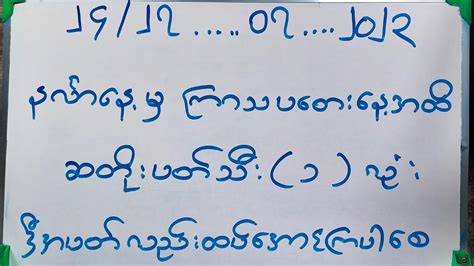 ၂၄/၂၇.....၀၇....၂၀၂၃
နင်္လာနေ့မှ ကြာသပတေးနေ့အထိ
ဆတိုးပတ်သီး(၁)လုံး
ဒီအပတ်လည်းထပ်အောင်ကြပါစေ